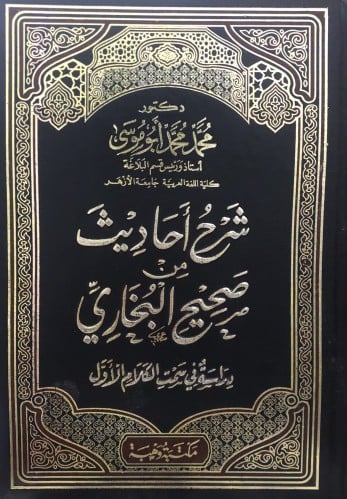 دكتور
محمد محمد أبو موسى
أستاذ ورئيس قسم البلاغة
كلية اللغة العربية جامعة الأزهر
شرح أحاديث
من
صحيح البخاري
دراسة في سمت الكلام الأول
مكتبة وهبة